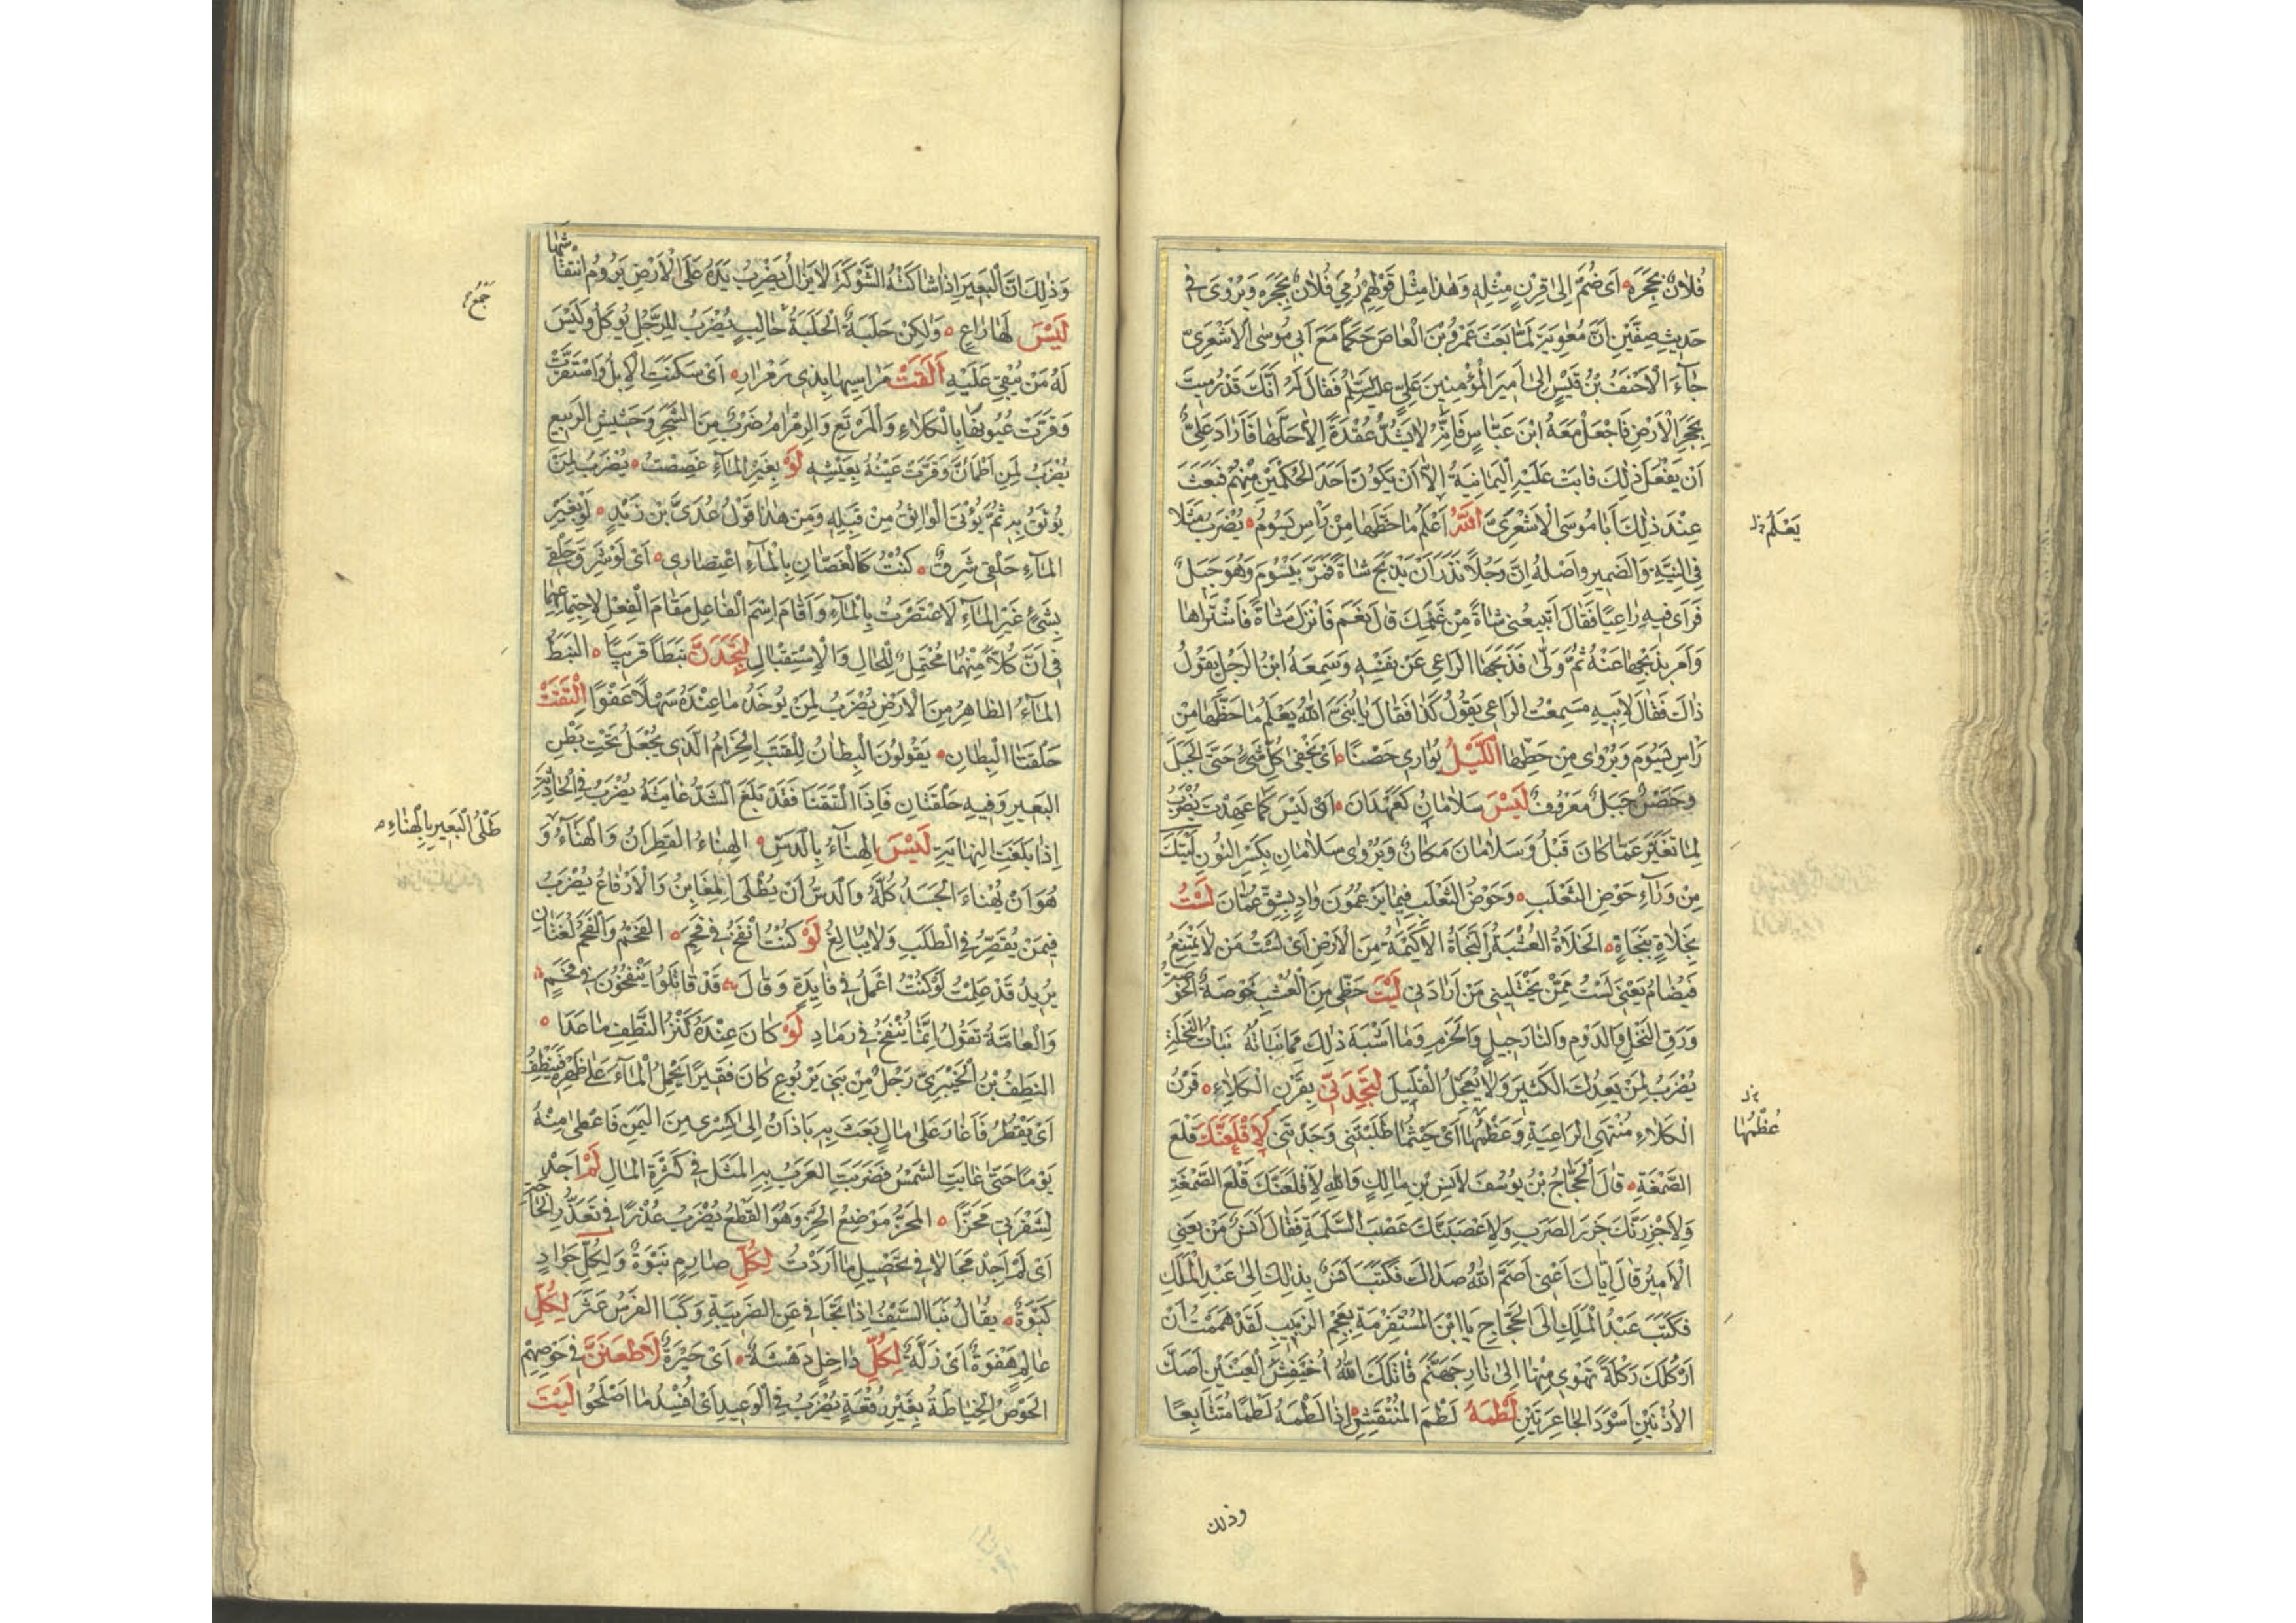 فُلَانٌ بِحَجَرِهِ أَى ضُمَّ إِلَى قِرْنٍ مِثْلِهِ وَهٰذَا مِثْلُ قَوْلِهِمْ رُمِيَ فُلَانٌ بِحَجَرِهِ وَيُرْوَى فِى
حَدِيثِ صِفِّينَ أَنَّ مُعٰوِيَةَ لَمَّا بَعَثَ عَمْرَو بْنَ الْعَاصِ حَكَمًا مَعَ أَبِى مُوسٰى الْأَشْعَرِىِّ
جَآءَ الْأَحْنَفُ بْنُ قَيْسٍ إِلٰى أَمِيرِ الْمُؤْمِنِينَ عَلِيٍّ عَلَيْهِ السَّلٰمُ فَقَالَ لَهُ إِنَّكَ قَدْ رُمِيتَ
بِحَجَرِ الْأَرْضِ فَاجْعَلْ مَعَهُ ابْنَ عَبَّاسٍ فَإِنَّهُ لَا يَشُدُّ عُقْدَةً إِلَّا حَلَّهَا فَأَرَادَ عَلِيٌّ
أَنْ يَفْعَلَ ذٰلِكَ فَابَتْ عَلَيْهِ الْيَمَانِيَةُ إِلَّا أَنْ يَكُونَ أَحَدَ الْحَكَمَيْنِ مِنْهُمْ فَبَعَثَ
عِنْدَ ذٰلِكَ أَبَا مُوسَى الْأَشْعَرِىَّ اَللّٰهُ أَعْلَمُ مَا حَظَّهَا مِنْ رَأْسِ يَسُومُ يُضْرَبُ مَثَلًا
فِى النِّيَّةِ وَالضَّمِيرِ وَأَصْلُهُ اِنَّ رَجُلًا نَذَرَ أَنْ يَذْبَحَ شَاةً فَمَرَّ بِيَسُومَ وَهُوَ جَبَلٌ
فَرَأَى فِيهِ رَاعِيًا فَقَالَ أَتَبِيعُنِى شَاةً مِنْ غَنَمِكَ قَالَ نَعَمْ فَانْزَلَ شَاةً فَاشْتَرَاهَا
وَأَمَرَ بِذَبْحِهَا عَنْهُ ثُمَّ وَلّٰى فَذَبَحَهَا الرَّاعِى عَنْ نَفْسِهِ وَسَمِعَهُ ابْنُ الرَّجُلِ يَقُولُ
ذَاكَ فَقَالَ لِأَبِيهِ سَمِعْتُ الرَّاعِى يَقُولُ كَذَا فَقَالَ يَا بُنَىَّ اللّٰهُ يَعْلَمُ مَا حَظَّهَا مِنْ
رَأْسِ يَسُومَ وَيُرْوٰى مِنْ حَطَّهَا اَللَّيْلُ يُوَارِى حَضَنًا أَىْ يَخْفٰى كُلُّ شَىْءٍ حَتَّى الْجَبَلَ
وَحَضَنٌ جَبَلٌ مَعْرُوفٌ لَيْسَ سَلَامَانُ كَعَهْدَانَ أَىْ لَيْسَ كَمَا عَهِدْتَ يُضْرَبُ
لِمَا تَغَيَّرَ عَمَّا كَانَ قَبْلُ وَسَلَامَانَ مَكَانٌ وَيُرْوٰى سَلَامَانِ بِكَسْرِ النُّونِ لَيْتَكَ
مِنْ وَرَآءِ حَوْضِ الثَّعْلَبِ وَحَوْضُ الثَّعْلَبِ فِيمَا يَزْعُمُونَ وَادٍ بِشِقِّ عُمَانَ لَسْتُ
بِخَلَاةٍ بِنَجَاةٍ الْخَلَاةُ الْعُشْبَةُ وَالنَّجَاةُ الْأَكَمَةُ مِنَ الْأَرْضِ أَىْ لَسْتُ مَنْ لَا يَمْتَنِعُ
فَيُضَامُ يَعْنِى لَسْتُ مِمَّنْ يَخْتَلِينِى مَنْ أَرَادَنِى لَيْتَ حَظِّى مِنَ الْعُشْبِ خُوصَهُ الْخُوصُ
وَرَقُ النَّخْلِ وَالدَّوْمِ وَالنَّارَجِيلِ وَالْخَزَمِ وَمَا أَشْبَهَ ذٰلِكَ مِمَّا نَبَاتُهُ نَبَاتُ النَّخْلَةِ
يُضْرَبُ لِمَنْ يَعِدُكَ الْكَثِيرَ وَلَا يُعَجِّلُ الْقَلِيلَ لَتَجِدَنِّى بِقَرْنِ الْكَلَاءِ قَرْنُ
الْكَلَاءِ مُنْتَهَى الرَّاعِيَةِ وَعَظْمُهَا أَىْ حَيْثُمَا طَلَبْتَنِى وَجَدْتَنِى لَأَقْلَعَنَّكَ قَلْعَ
الصَّمْغَةِ قَالَ الْحَجَّاجُ بْنُ يُوسُفَ لِأَنَسِ بْنِ مَالِكٍ وَاللّٰهِ لَأَقْلَعَنَّكَ قَلْعَ الصَّمْغَةِ
وَلَأَجْزِرَنَّكَ جَزْرَ الضَّرَبِ وَلَأَعْصِبَنَّكَ عَصْبَ السَّلَمَةِ فَقَالَ أَنَسٌ مَنْ يَعْنِى
الْأَمِيرُ قَالَ إِيَّاكَ أَعْنِى أَصَمَّ اللّٰهُ صَدَاكَ فَكَتَبَ أَنَسٌ بِذٰلِكَ إِلٰى عَبْدِ الْمَلِكِ
فَكَتَبَ عَبْدُ الْمَلِكِ إِلَى الْحَجَّاجِ يَا ابْنَ الْمُسْتَفْرِمَةِ بِعَجَمِ الزَّبِيبِ لَقَدْ هَمَمْتُ أَنْ
أَرْكُلَكَ رَكْلَةً تَهْوِى مِنْهَا إِلٰى نَارِ جَهَنَّمَ قَاتَلَكَ اللّٰهُ أُخَيْفِشَ الْعَيْنَيْنِ أَصَكَّ
الْأُذُنَيْنِ أَسْوَدَ الْجَاعِرَتَيْنِ لَطَمَهُ لَطْمَ الْمُنْتَقِشِ إِذَا لَطَمَهُ لَطْمًا مُتَتَابِعًا
يَعْلَمُ
عُظْمُهَا
وذلك
وَذٰلِكَ أَنَّ الْبَعِيرَ إِذَا شَاكَتْهُ الشَّوْكَةُ لَا يَزَالُ يَضْرِبُ يَدَهُ عَلَى الْأَرْضِ يَرُومُ انْتِقَاشَهَا
لَيْسَ لَهَا رَاعٍ وَلٰكِنْ حَلَبَةٌ الْحَلَبَةُ حَالِبٍ يُضْرَبُ لِلرَّجُلِ يُوكَلُ وَلَيْسَ
لَهُ مَنْ يُبْقِى عَلَيْهِ أَلْقَتْ مَرَاسِيهَا بِذِى رَمْرَامٍ أَىْ سَكَنَتِ الْإِبِلُ وَاسْتَقَرَّتْ
وَقَرَّتْ عُيُونُهَا بِالْكَلَاءِ وَالْمَرْتَعِ وَالرَّمْرَامُ ضَرْبٌ مِنَ الشَّجَرِ وَحَشِيشِ الرَّبِيعِ
يُضْرَبُ لِمَنِ اطْمَأَنَّ وَقَرَّتْ عَيْنُهُ بِعَيْشِهِ لَوْ بِغَيْرِ الْمَآءِ غَصِصْتُ يُضْرَبُ لِمَنْ
يُوثَقُ بِهِ ثُمَّ يُؤْتَى الْوَاثِقُ مِنْ قِبَلِهِ وَمِنْ هٰذَا قَوْلُ عُدَىِّ بْنِ زَيْدٍ لَوْ بِغَيْرِ
الْمَآءِ حَلْقِى شَرِقٌ كُنْتُ كَالْغَصَّانِ بِالْمَآءِ اعْتِصَارِى أَىْ لَوْ شَرِقَ حَلْقِى
بِشَىْءٍ غَيْرِ الْمَآءِ لَاعْتَصَرْتُ بِالْمَآءِ وَأَقَامَ اِسْمَ الْفَاعِلِ مَقَامَ الْفِعْلِ لِاجْتِمَاعِهِمَا
فِى أَنَّ كُلًّا مِنْهُمَا مُحْتَمِلٌ لِلْحَالِ وَالْاِسْتِقْبَالِ لَتَجِدَنَّ نَبَطًا قَرِيبًا النَّبَطُ
الْمَآءُ الظَّاهِرُ مِنَ الْأَرْضِ يُضْرَبُ لِمَنْ يُوخَذُ مَا عِنْدَهُ سَهْلًا عَفْوًا اِلْتَقَتْ
حَلْقَتَا الْبِطَانِ يَقُولُونَ الْبِطَانُ لِلْقَتَبِ الْحِزَامُ الَّذِى يُجْعَلُ تَحْتَ بَطْنِ
الْبَعِيرِ وَفِيهِ حَلْقَتَانِ فَاِذَا الْتَقَتَا فَقَدْ بَلَغَ الشَّدُّ غَايَتَهُ يُضْرَبُ فِى الْحَادِثَةِ
إِذَا بَلَغَتِ النِّهَايَةَ لَيْسَ الْهِنَآءُ بِالدَّسِّ الْهِنَاءُ الْقَطِرَانُ وَالْهَنَآءُ وَ
هُوَ أَنْ يُهْنَاءَ الْجَسَدُ كُلُّهُ وَالدَّسُّ أَنْ يُطْلَى الْمَغَابِنُ وَالْأَرْفَاغُ يُضْرَبُ
فِيمَنْ يُقَصِّرُ فِى الطَّلَبِ وَلَا يُبَالِغُ لَوْ كُنْتُ أَنْفُخُ فِى فَحَمٍ الْفَحْمُ وَالْفَحَمُ لُغَتَانِ
يُرِيدُ قَدْ عَلِمْتُ لَوْ كُنْتُ أَعْمَلُ فِى فَايِدَةٍ وَقَالَ قَدْ قَاتَلُوا لَوْ يَنْفُخُونَ فِى فَحَمٍ
وَالْعَامَّةُ تَقُولُ إِنَّمَا يُنْفَخُ فِى رَمَادٍ لَوْ كَانَ عِنْدَهُ كَنْزُ النَّطِفِ مَا عَدَا
النَّطِفُ بْنُ الْخَيْبَرِىِّ رَجُلٌ مِنْ بَنِى يَرْبُوعٍ كَانَ فَقِيرًا يَحْمِلُ الْمَآءَ عَلٰى ظَهْرِهِ فَيَنْطِفُ
أَىْ يَقْطُرُ فَأَغَارَ عَلٰى مَالٍ بَعَثَ بِهِ بَاذَانُ إِلٰى كِسْرٰى مِنَ الْيَمَنِ فَأَعْطٰى مِنْهُ
يَوْمًا حَتّٰى غَابَتِ الشَّمْسُ فَضَرَبَتِ الْعَرَبُ بِهِ الْمَثَلَ فِى كَثْرَةِ الْمَالِ لَمْ أَجِدْ
لِشَفْرَتِى مَحَزًّا الْمَحَزُّ مَوْضِعُ الْحَزِّ وَهُوَ الْقَطْعُ يُضْرَبُ عُذْرًا فِى تَعَذُّرِ الْحَاجَةِ
أَىْ لَمْ أَجِدْ مَجَالًا فِى تَحْصِيلِ مَا أَرَدْتُ لِكُلِّ صَارِمٍ نَبْوَةٌ وَلِكُلِّ جَوَادٍ
كَبْوَةٌ يُقَالُ نَبَا السَّيْفُ إِذَا تَجَافٰى عَنِ الضَّرِيبَةِ وَكَبَا الْفَرَسُ عَثَرَ لِكُلِّ
عَالِمٍ هَفْوَةٌ أَىْ زَلَّةٌ لِكُلِّ دَاخِلٍ دَهْشَةٌ أَىْ حَيْرَةٌ لَأَطْعَنَنَّ فِى حَوْصِهِمْ
الْحَوْصُ الْخِيَاطَةُ بِغَيْرِ رُقْعَةٍ يُضْرَبُ فِى الْوَعِيدِ أَىْ أُفْسِدُ مَا أَصْلَحُوا لَيْتَ
جَمْعُ
طَلْىُ الْبَعِيرِ بِالْهِنَاءِ